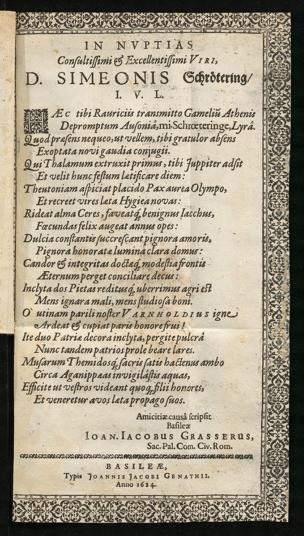 IN NVPTIAS
Consultissimi & Excellentissimi VIRI,
D. SIMEONIS Schrötering/
I. V. L.
HÆC tibi Rauriciis transmitto Gameliũ Athenis
Depromptum Ausoniâ, mi Schrœteringe, Lyrâ.
Quod præsens nequeo, ut vellem, tibi gratulor absens
Exoptata novi gaudia conjugii.
Qui Thalamum extruxit primus, tibi Juppiter adsit
Et velit hunc festum lætificare diem:
Theutoniam aspiciat placido Pax aurea Olympo,
Et recreet vires læta Hygiea novas:
Rideat alma Ceres, faveatq́, benignus Iacchus,
Fœcundas felix augeat annus opes:
Dulcia constantis succrescant pignora amoris,
Pignora honoratæ lumina clara domus:
Candor & integritas doctæq́, modestia frontis
Æternum perget conciliare decus:
Inclyta dos Pietas reditusq́, uberrimus agri est
Mens ignara mali, mens studiosa boni.
O utinam pari li noster VARNHOLDIUS igne
Ardeat & cupiat paris honore frui!
Ite duo Patriæ decora inclyta, pergite pulcrâ
Nunc tandem patrios prole beare lares.
Musarum Themidosq́, sacris satis hactenus ambo
Circa Aganippæas invigilâstis aquas,
Efficite ut vestros videant quoq́, filii honores,
Et veneretur avos læta propago suos.
Amicitiæ causâ scripsit
Basileæ
IOAN. IACOBUS GRASSERUS,
Sac. Pal. Com. Civ. Rom.
BASILEÆ,
Typis JOANNIS JACOBI GENATHII.
Anno 1624.